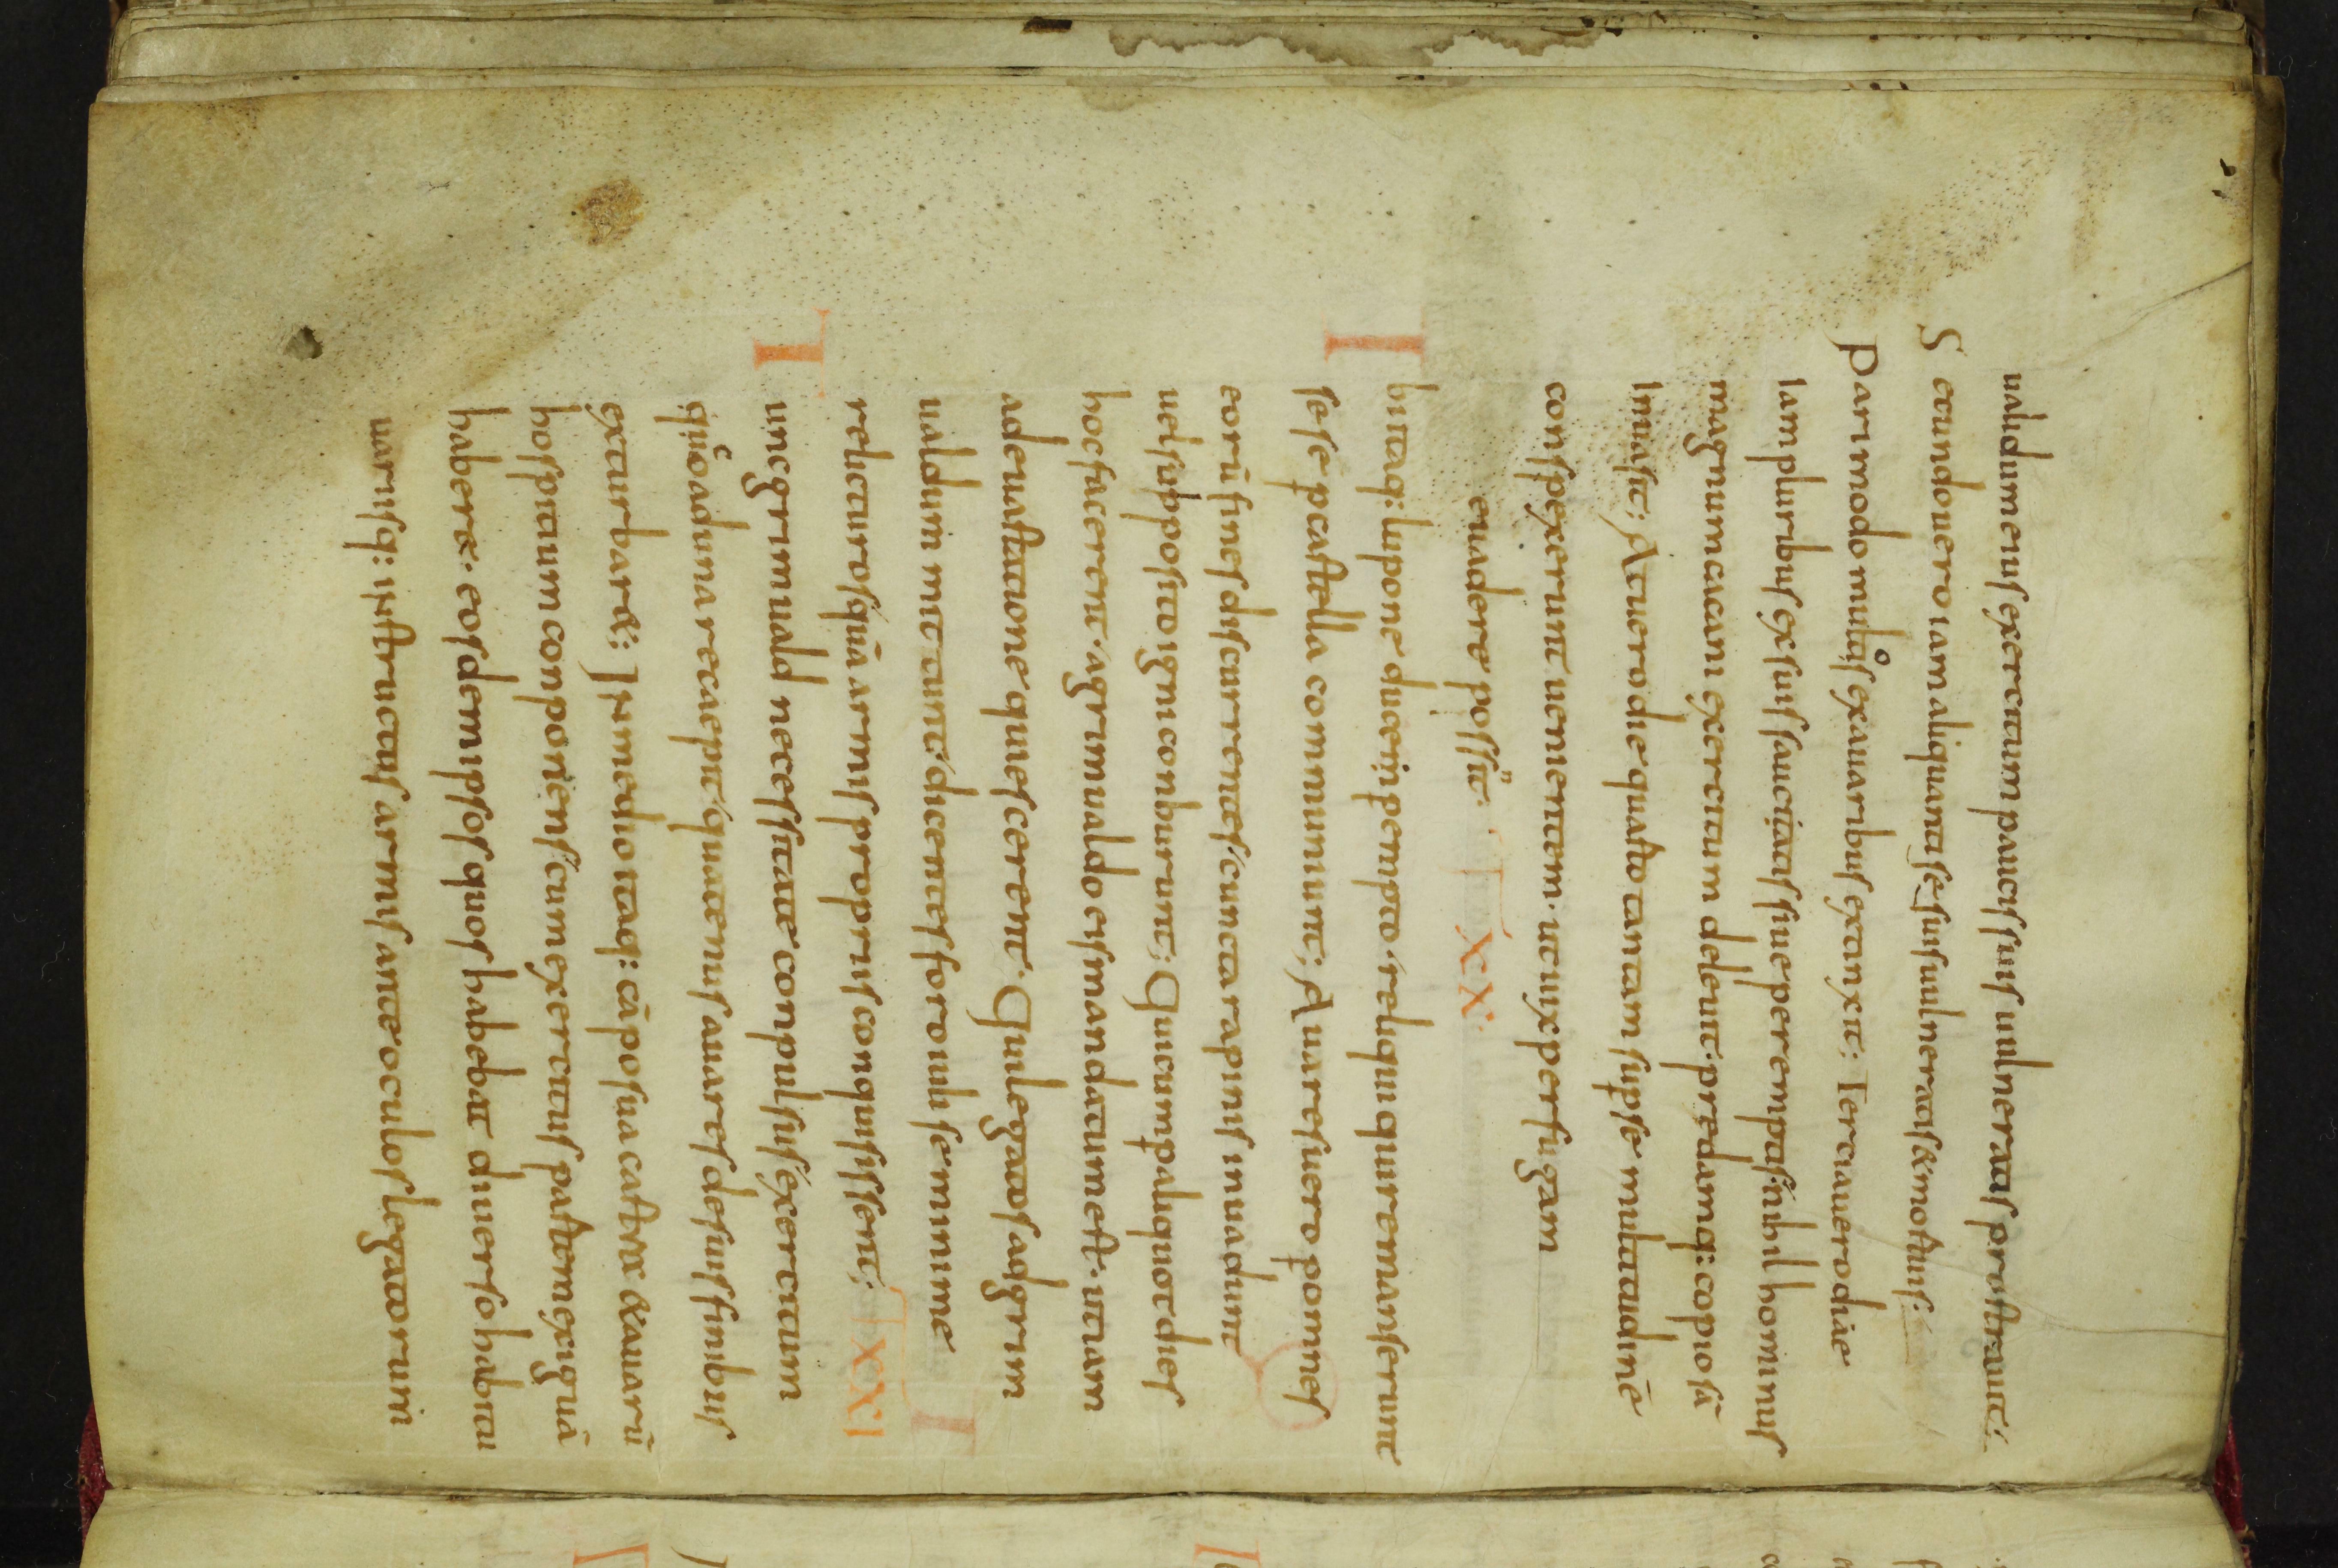 ualidum eius exercitum paucis suis uulneratis prostrauit;
Secundo uero iam aliquantis e suis uulneratis & mortuis;
Pari modo multos ex auaribus extinxit; Tertia uero die
iam pluribus ex suis sauciatis siue peremptis, nihil hominus
magnum cacani exercitum deleuit. predamq: copiosā
inuasit; At uero die quarto tantam sup se multitudinē
conspexerunt uenientem. ut uix per fugam
euadere possit. XX.
Ibi itaq: lupone duce inpempto, reliqui qui remanserunt
sese p castella communiunt; Auares uero p omnes
eorū fines discurrentes, cuncta rapinis inuadunt
uel supposito igni conburunt; Qui cum p aliquot dies
hoc facerent, a grimualdo eis mandatum est. ut iam
a deuastatione quiescerent. Qui legatos ad grim
ualdum mittunt, dicentes foroiuli se minime
relicturos, quā armis propriis conquisissent; XXI
Tunc grimuald necessitate conpulsus exercitum
quoadunare caepit, quatenus auares de suis finibus
exturbaret; IN medio itaq: cāpo sua castra & auarū
hospitium conponens cum exercitus partem exiguā
haberet. eosdem ipsos quos habebat diuerso habitu
uariisq: iNstructus armis ante oculos legatorum